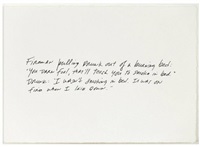 Fireman pulling Drunk out of a burning bed:
"You damn fool, that'll teach you to smoke in bed"
Drunk: I wasn't smoking in bed. It was on
fire when I laid down."